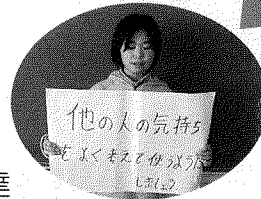 他の人の気持ち
をよく考えて使うように
しましょう
達